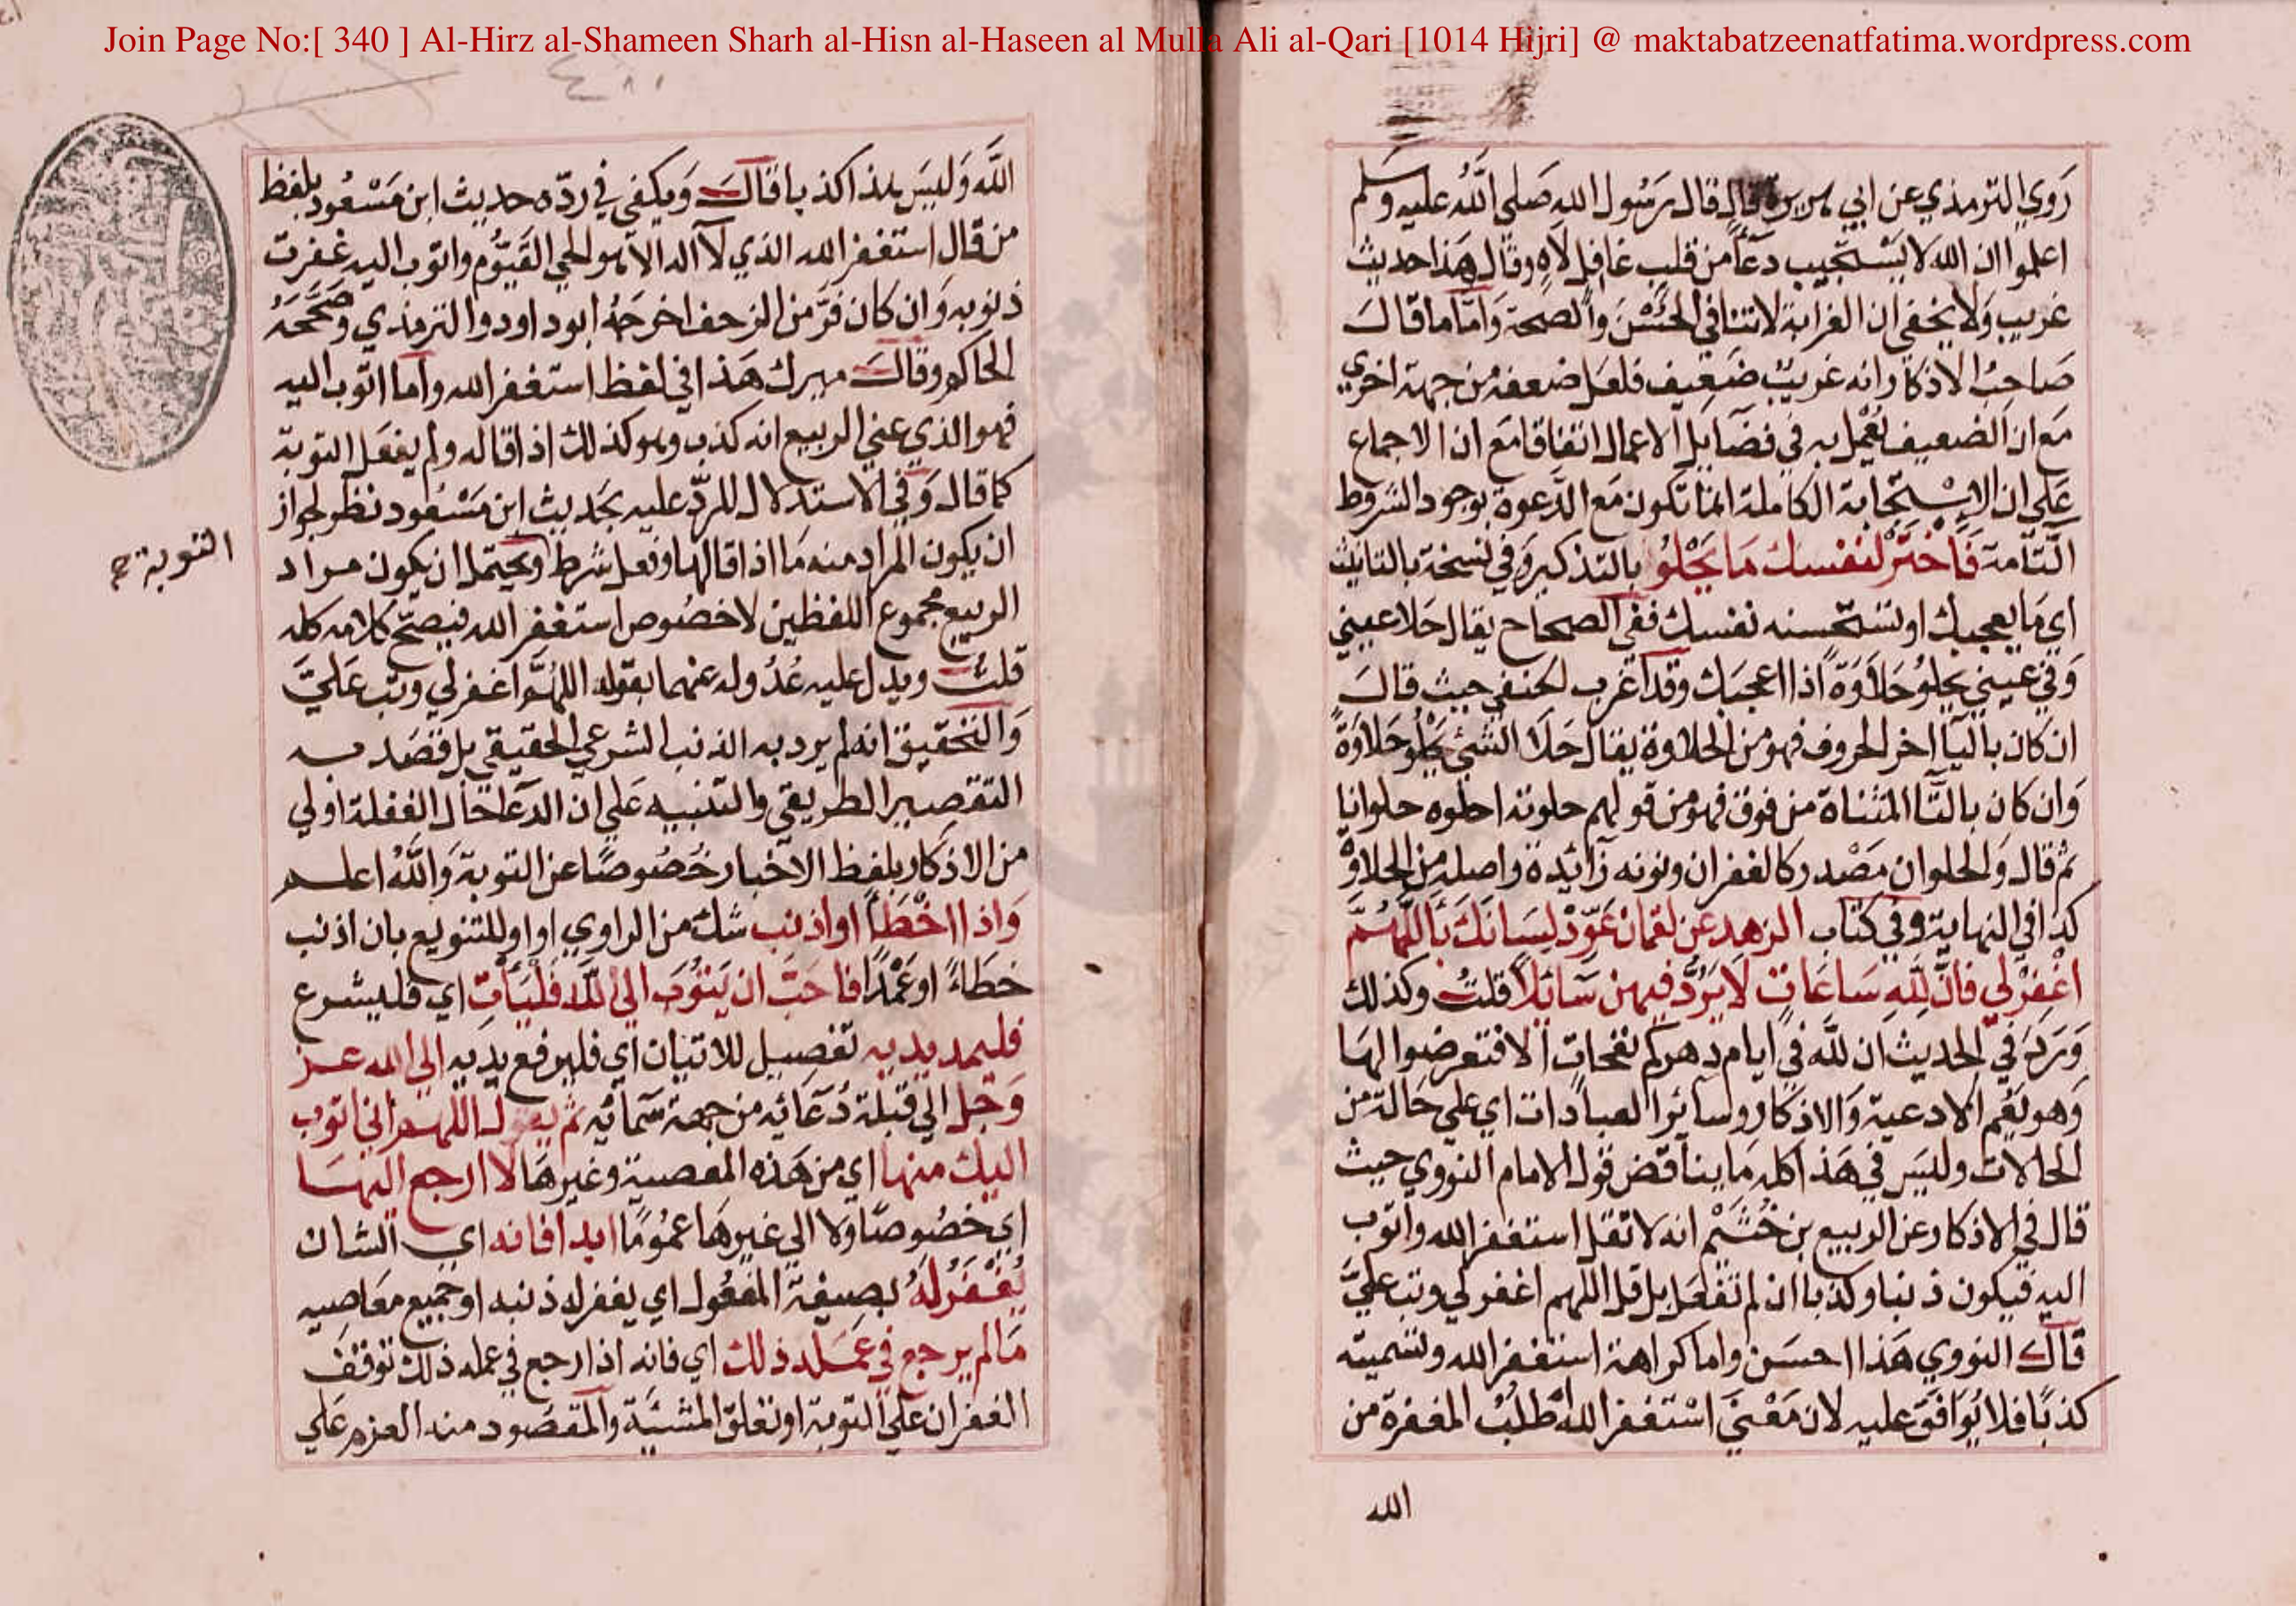 Join Page No:[ 340 ] Al-Hirz al-Shameen Sharh al-Hisn al-Haseen al Mulla Ali al-Qari [1014 Hijri] @ maktabatzeenatfatima.wordpress.com
روي الترمذي عن ابي هريرة قال قال رسول الله صلي الله عليه وسلم
اعلموا ان الله لا يستجيب دعاء من قلب غافل لاه وقال هذا حديث
غريب ولا يخفي ان الغرابة لا تنافي الحسن والصحة واما ما قال
صاحب الاذكار انه غريب ضعيف فلعل ضعفه من جهة اخري
مع ان الضعيف يعمل به في فضايل الاعمال اتفاقا مع ان الاجماع
علي ان الاستجابة الكاملة انما تكون مع الدعوة بوجود الشروط
التامة فاختر لنفسك ما يحلو بالتذكير وفي نسخة بالتانيث
اي ما يعجبك او تستحسنه نفسك ففي الصحاح يقال حلا عيني
وفي عيني يحلو حلاوة اذا اعجبك وقد اغرب الحنفي حيث قال
ان كان باليا اخر الحروف فهو من الحلاوة يقال حلا الشئ يحلو حلاوة
وان كان بالتا المثناة من فوق فهو من قولهم حلوته احلوه حلوانا
ثم قال والحلوان مصدر كالغفران ونونه زائدة واصله من الحلاوة
كذا في النهاية وفي كتاب الزهد عن لقمان عود لسانك باللهم
اغفر لي فان لله ساعات لا يرد فيهن سائلا قلت وكذلك
ورد في الحديث ان لله في ايام دهركم نفحات الا فتعرضوا لها
وهو يعم الادعية والاذكار وسائر العبادات اي علي حالة من
الحالات وليس في هذا كله ما يناقض قول الامام النووي حيث
قال في الاذكار عن الربيع بن خثيم انه لا تقل استغفر الله واتوب
اليه فيكون ذنبا وكذبا ان لم تفعل بل قل اللهم اغفر لي وتب علي
قال النووي هذا احسن واما كراهة استغفر الله وتسميته
كذبا فلا يوافق عليه لان معني استغفر الله اطلب المغفرة من
الله
الله وليس هذا كذبا قال ويكفي في رده حديث ابن مسعود بلفظ
من قال استغفر الله الذي لا اله الا هو الحي القيوم واتوب اليه غفرت
ذنوبه وان كان فر من الزحف اخرجه ابو داود والترمذي وصححه
الحاكم وقال ميرك هذا في لفظ استغفر الله واما اتوب اليه
فهو الذي عني الربيع انه كذب وهو كذلك اذا قاله ولم يفعل التوبة
كما قال وفي الاستدلال للرد عليه بحديث ابن مسعود نظر لجواز
ان يكون المراد منه ما اذا قالها وفعل شرط ويحتمل ان يكون مراد
التوبة
الربيع مجموع اللفظين لا خصوص استغفر الله فيصح كلامه كله
قلت ويدل عليه عدوله عنهما بقوله اللهم اغفر لي وتب علي
والتحقيق انه لم يرد به الذنب الشرعي الحقيقي بل قصد به
التقصير الطريقي والتنبيه علي ان الدعا حال الغفلة اولي
من الاذكار بلفظ الاخبار خصوصا عن التوبة والله اعلم
واذا اخطأ او اذنب شك من الراوي او او للتنويع بان اذنب
خطاء او عمدا فاحب ان يتوب الي الله فليأت اي فليشرع
فليمد يديه تفصيل للاتيان اي فليرفع يديه الي الله عز
وجل الي قبلة دعائه من جهة سمائه ثم يقول اللهم اني اتوب
اليك منها اي من هذه المعصية وغيرها لا ارجع اليها
اي خصوصا ولا الي غيرها عموما ابدا فانه اي الشان
يغفر له بصيغة المفعول اي يغفر له ذنبه او جميع معاصيه
ما لم يرجع في عمله ذلك اي فانه اذا رجع في عمله ذلك توقف
الغفران علي التوبة او تعلق المشيئة والمقصود منه العزم علي